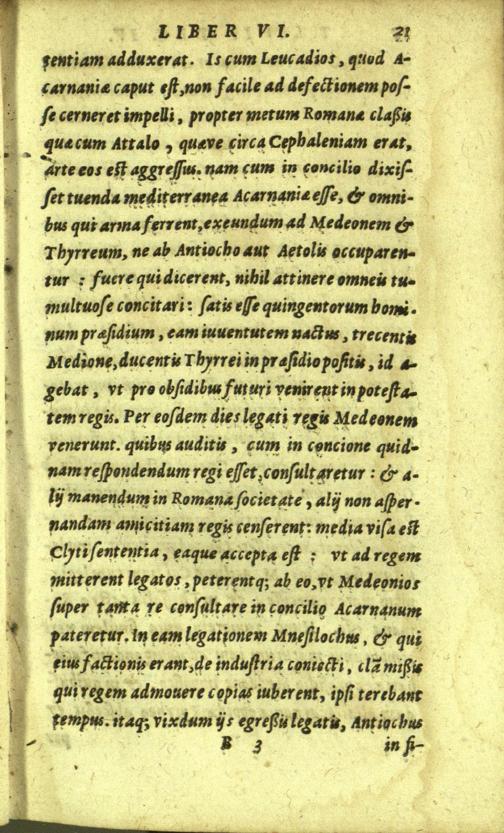 LIBER VI. 21
tentiam adduxerat. Is cum Leucadios, quod A-
carnaniæ caput est, non facile ad defectionem pos-
se cerneret impelli, propter metum Romanæ classis
quæ cum Attalo, quæve circa Cephaleniam erat,
arte eos est aggressus. nam cum in concilio dixis-
set tuenda mediterranea Acarnaniæ esse, & omni-
bus qui arma ferrent, exeundum ad Medeonem &
Thyrreum, ne ab Antiocho aut Aetolis occuparen-
tur : fuere qui dicerent, nihil attinere omneis tu-
multuose concitari: satis esse quingentorum homi-
num præsidium, eam iuuentutem nactus, trecentis
Medione, ducentis Thyrrei in præsidio positis, id a-
gebat, vt pro obsidibus futuri venirent in potesta-
tem regis. Per eosdem dies legati regis Medeonem
venerunt. quibus auditis, cum in concione quid-
nam respondendum regi esset, consultaretur: & a-
lij manendum in Romana societate, alij non asper-
nandam amicitiam regis censerent: media visa est
Clyti sententia, eaque accepta est : vt ad regem
mitterent legatos, peterentq; ab eo, vt Medeonios
super tanta re consultare in concilio Acarnanum
pateretur. In eam legationem Mnesilochus, & qui
eius factionis erant, de industria coniecti, clã missis
qui regem admouere copias iuberent, ipsi terebant
tempus. itaq; vixdum ijs egressis legatis, Antiochus
B 3 in fi-